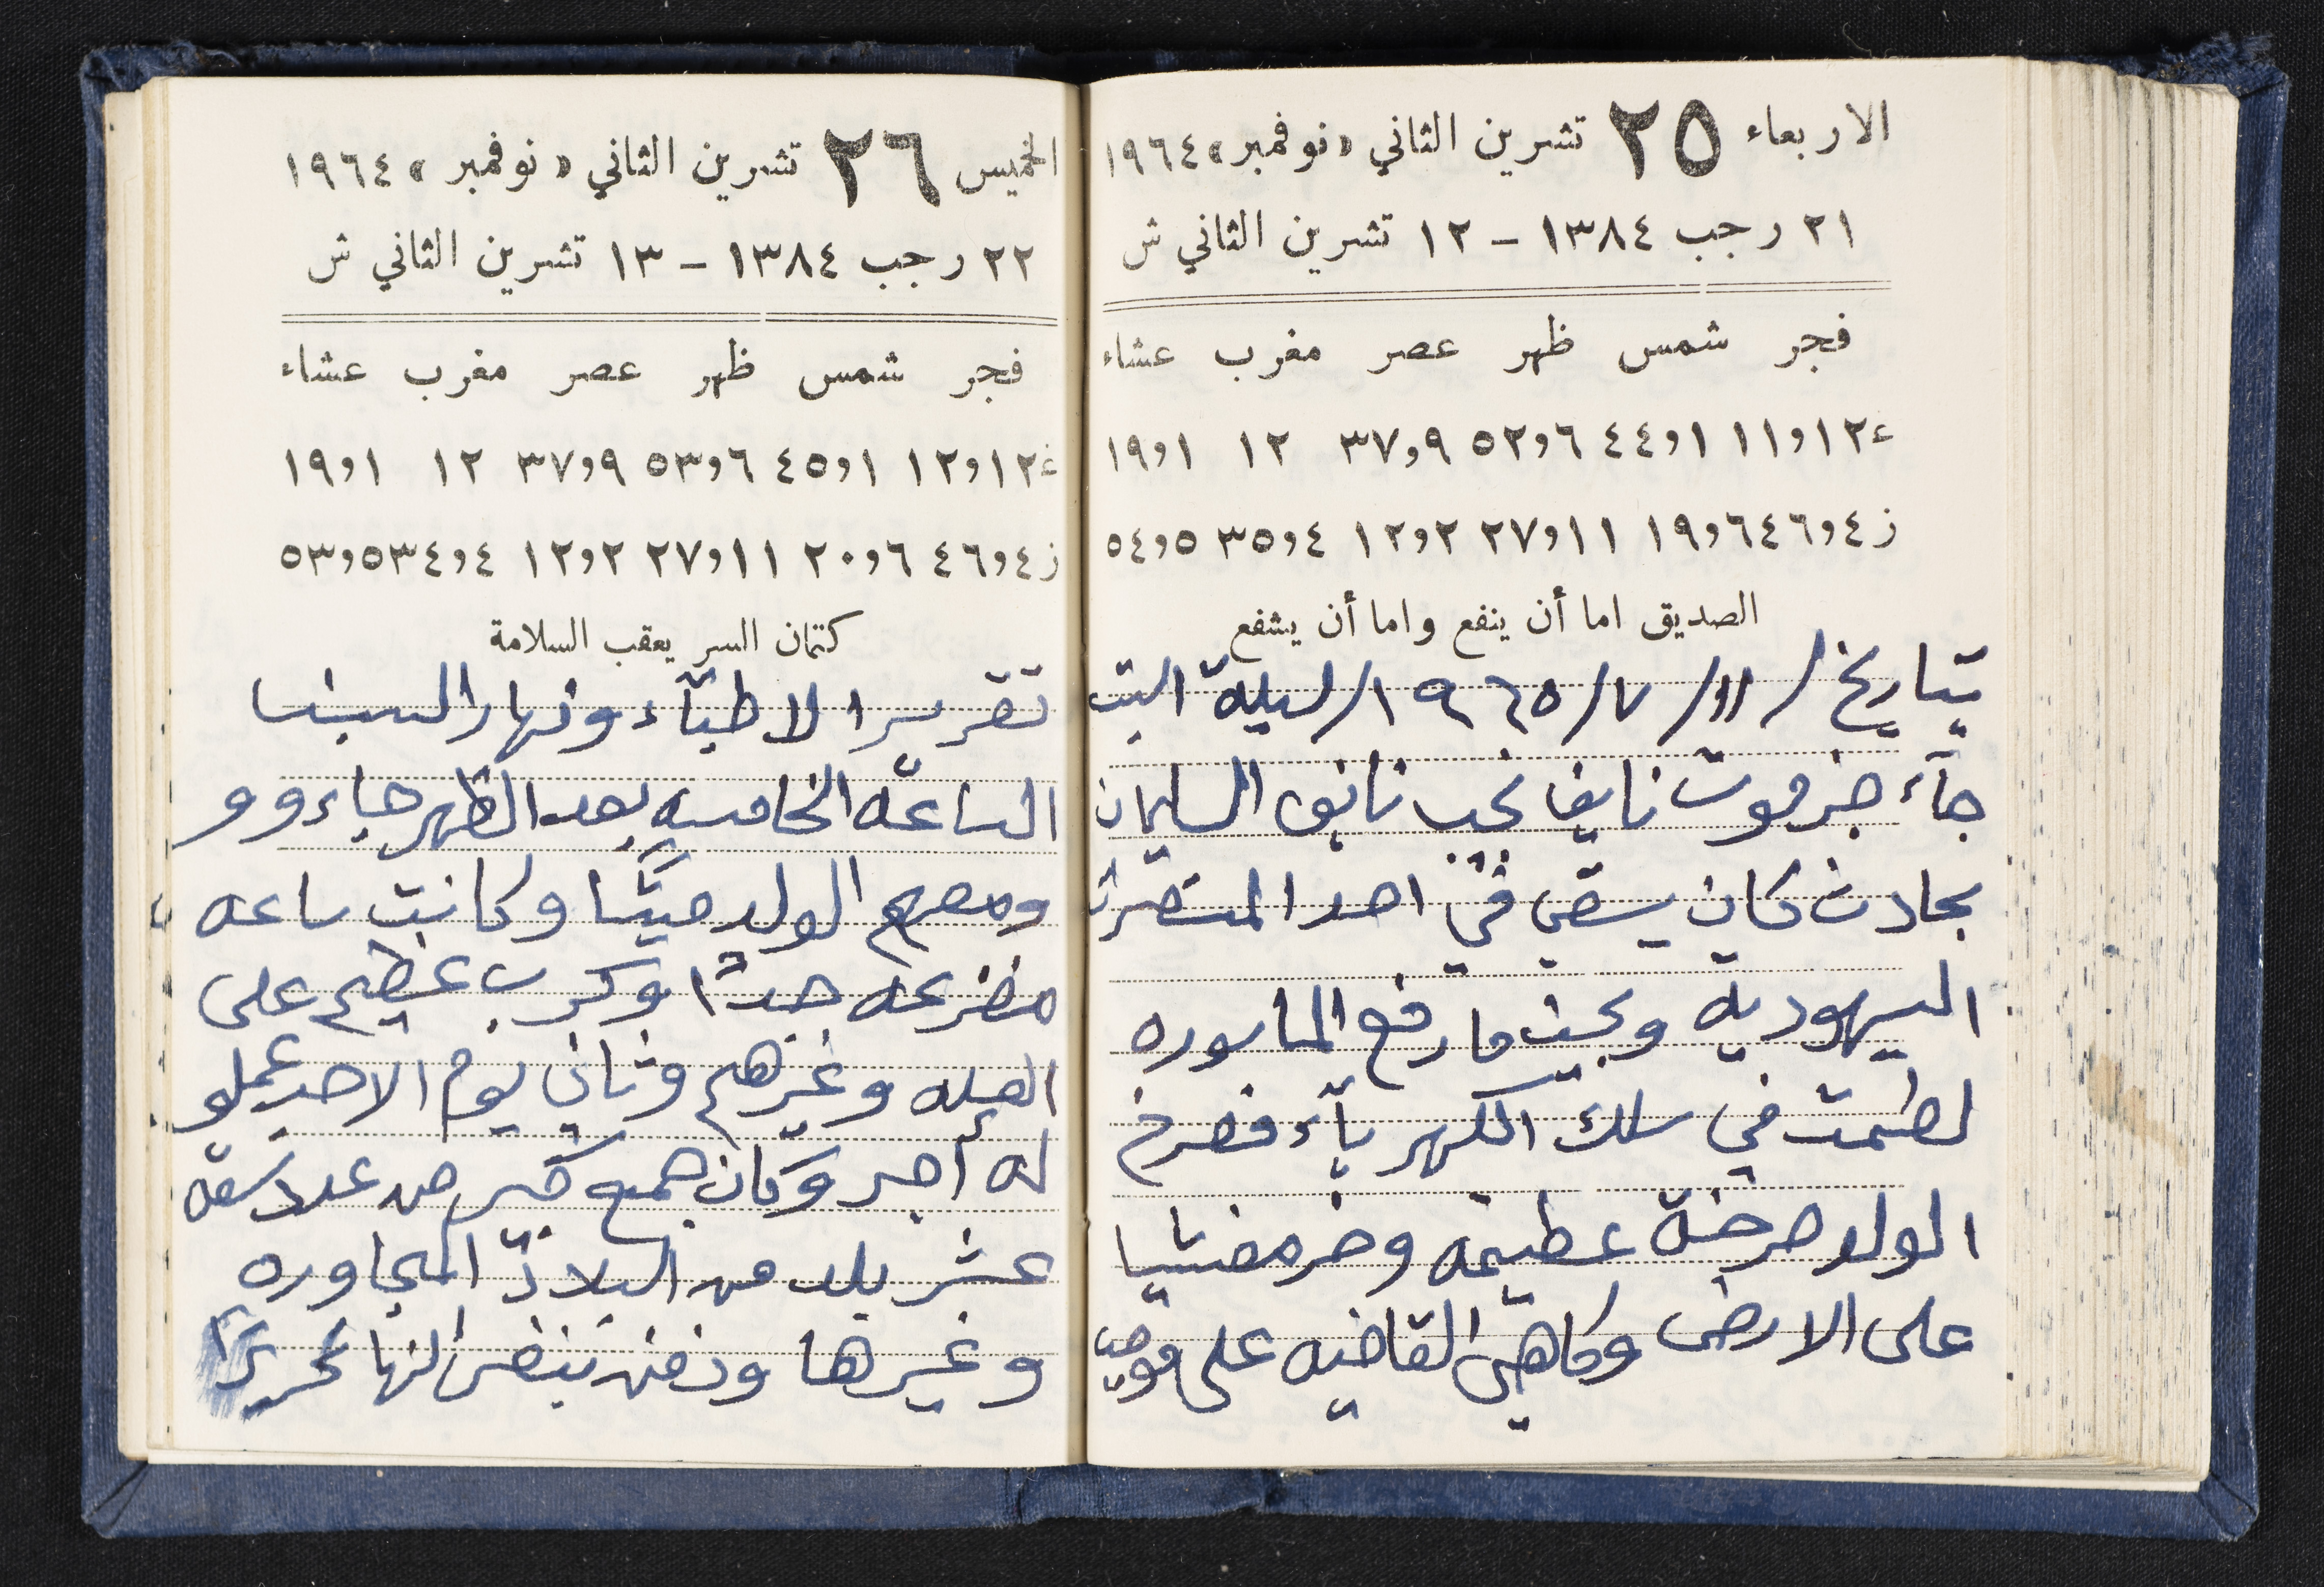 الاربعاء ٢٥ تشرين الثاني «نوفمبر» ١٩٦٤
٢١ رجب ١٣٨٤ - ١٢ تشرين الثاني ش
فجر شمس ظهر عصر مغرب عشاء
ع ١٢و١١ ١و٤٤ ٦و٥٢ ٩و٣٧ ١٢ ١و١٩
ز ٤و٤٦ ٦و١٩ ١١و٢٧ ٢و١٢ ٤و٣٥ ٥و٥٤
الصديق اما أن ينفع واما أن يشفع
بتاريخ /١١/ ٧/ ١٩٦٥/ ليلة البت
جآء خبر موت نايف نجيب نايف السليمان
بحادث كان يسقي في احد المستعمرات
اليهودية وبحيث ما رفع الماسوره
لطمت في سلك الكهربآء فصرخ
الولد صرخة عظيمه وخر مغشيا
على الارض وكاهي القاضيه على موجب
الخميس ٢٦ تشرين الثاني «نوفمبر» ١٩٦٤
٢٢ رجب ١٣٨٤ - ١٣ تشرين الثاني ش
فجر شمس ظهر عصر مغرب عشاء
ع ١٢و١٢ ١و٤٥ ٦و٥٣ ٩و٣٧ ١٢ ١و١٩
ز ٤و٤٦ ٦و٢٠ ١١و٢٧ ٢و١٢ ٤و٣٤ ٥و٥٣
كتمان السر يعقب السلامة
تقرير الاطبآء ونهار السبت
الساعه الخامسه بعد الظهر جاءوو
ومعهم الولد ميتًا وكانت ساعه
مفزعه جدًا وكرب عظيم على
العيله وغيرهم وثاني يوم الاحد عملو
له أجر وكان جمع كبير من عدد تسعه
عشر بلد من البلاد المجاوره
وغيرها ودفن بنفس النهار تحريرًا